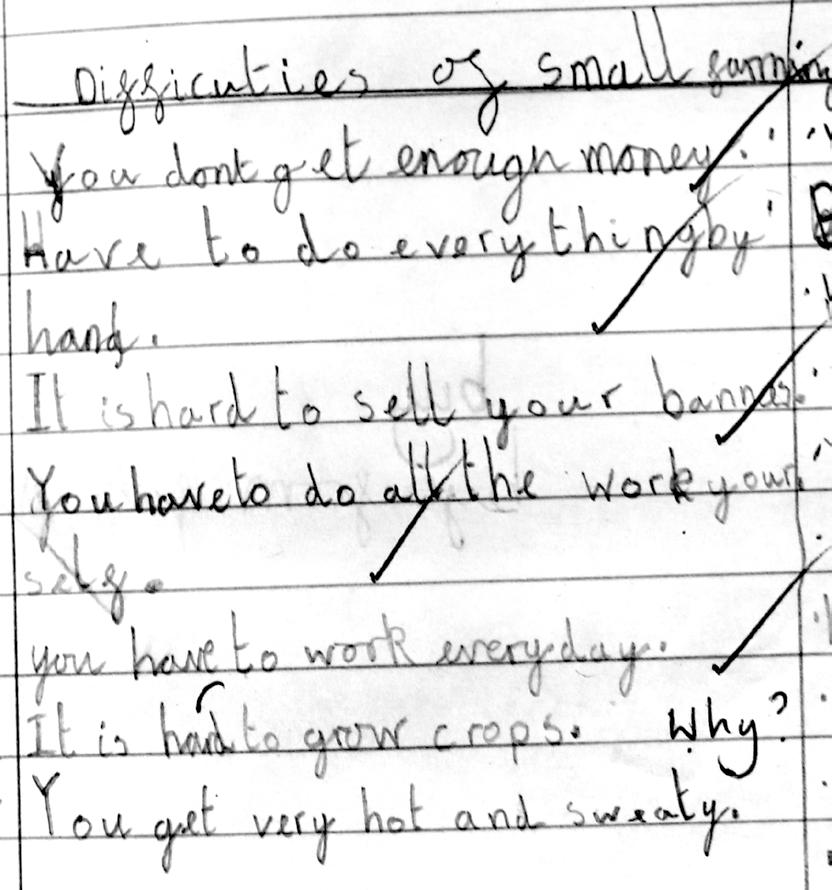 Difficuties of small farming
You dont get enough money.
Have to do everything by
hand.
It is hard to sell your bannas.
You have to do all the work your
self.
you have to work everyday.
It is hard to grow crops. Why?
You get very hot and sweaty.